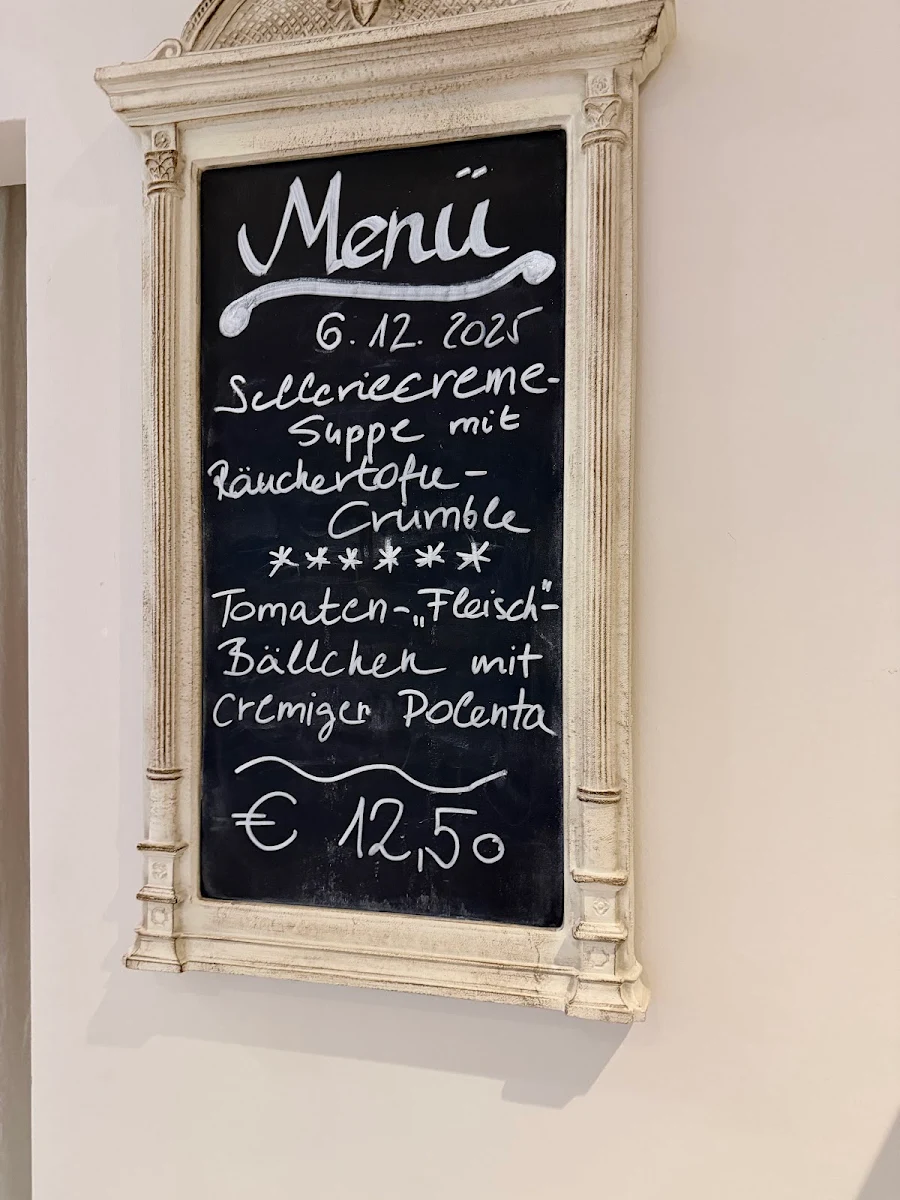 Menü
6.12.2025
Selleriecreme-
Suppe mit
Räuchertofu-
Crumble
******
Tomaten-„Fleisch"-
Bällchen mit
cremiger Polenta
€ 12,50